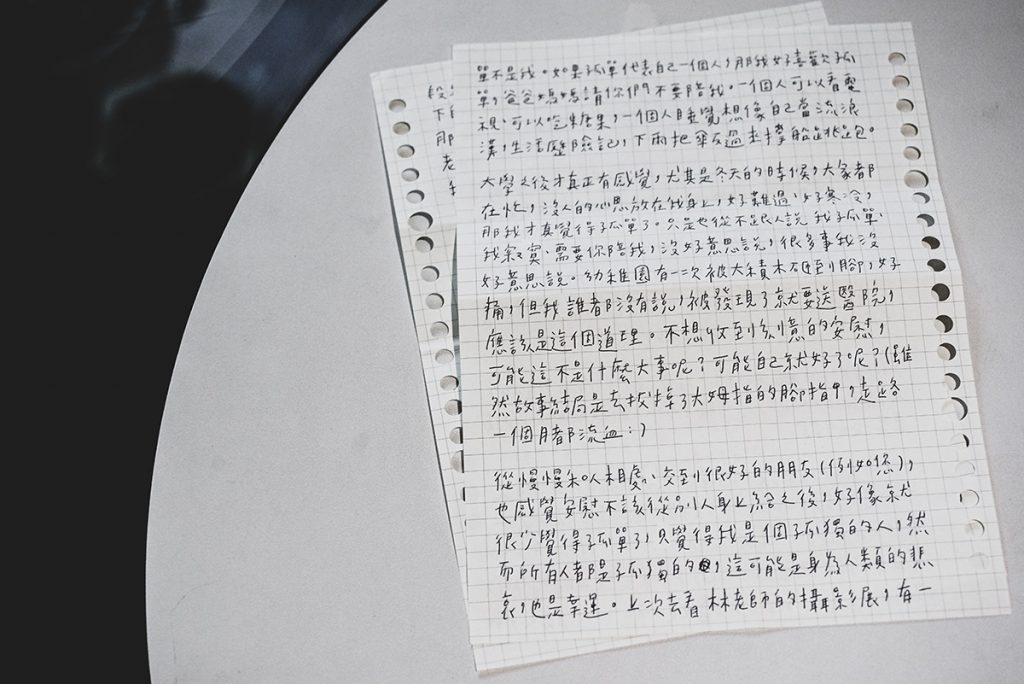 單不是我。如果孤單代表自己一個人，那我好喜歡孤
單，爸爸媽媽請你們不要陪我。一個人可以看電
視、可以吃糖果，一個人睡覺想像自己當流浪
漢，生活歷險記，下雨把傘反過來撐船跳跑。
大學之後才真正有感覺，尤其是冬天的時候，大家都
在忙，沒人的心思放在我身上，好難過、好寒冷，
那我才真覺得孤單了。只是也從不跟人說 我孤單、
我寂寞、需要你陪我，沒好意思說，很多事我沒
好意思說。幼稚園有一次被大積木砸到腳，好
痛，但我誰都沒有說，被發現了就要送醫院，
應該是這個道理。不想收到多憶的安慰，
可能這不是什麼大事呢？可能自己就好了呢？(雖
然故事結局是去拔掉了大姆指的腳指甲，走路
一個月都流血:)
從慢慢和人相處、交到很好的朋友(例如您)，
也感覺安慰不該從別人身上給之後，好像就
很少覺得孤單了，只覺得我是個孤獨的人，然
而所有人都是孤獨的，這可能是身為人類的悲
哀，也是幸運。上次去看林老師的攝影展，有一
給
下
那
老